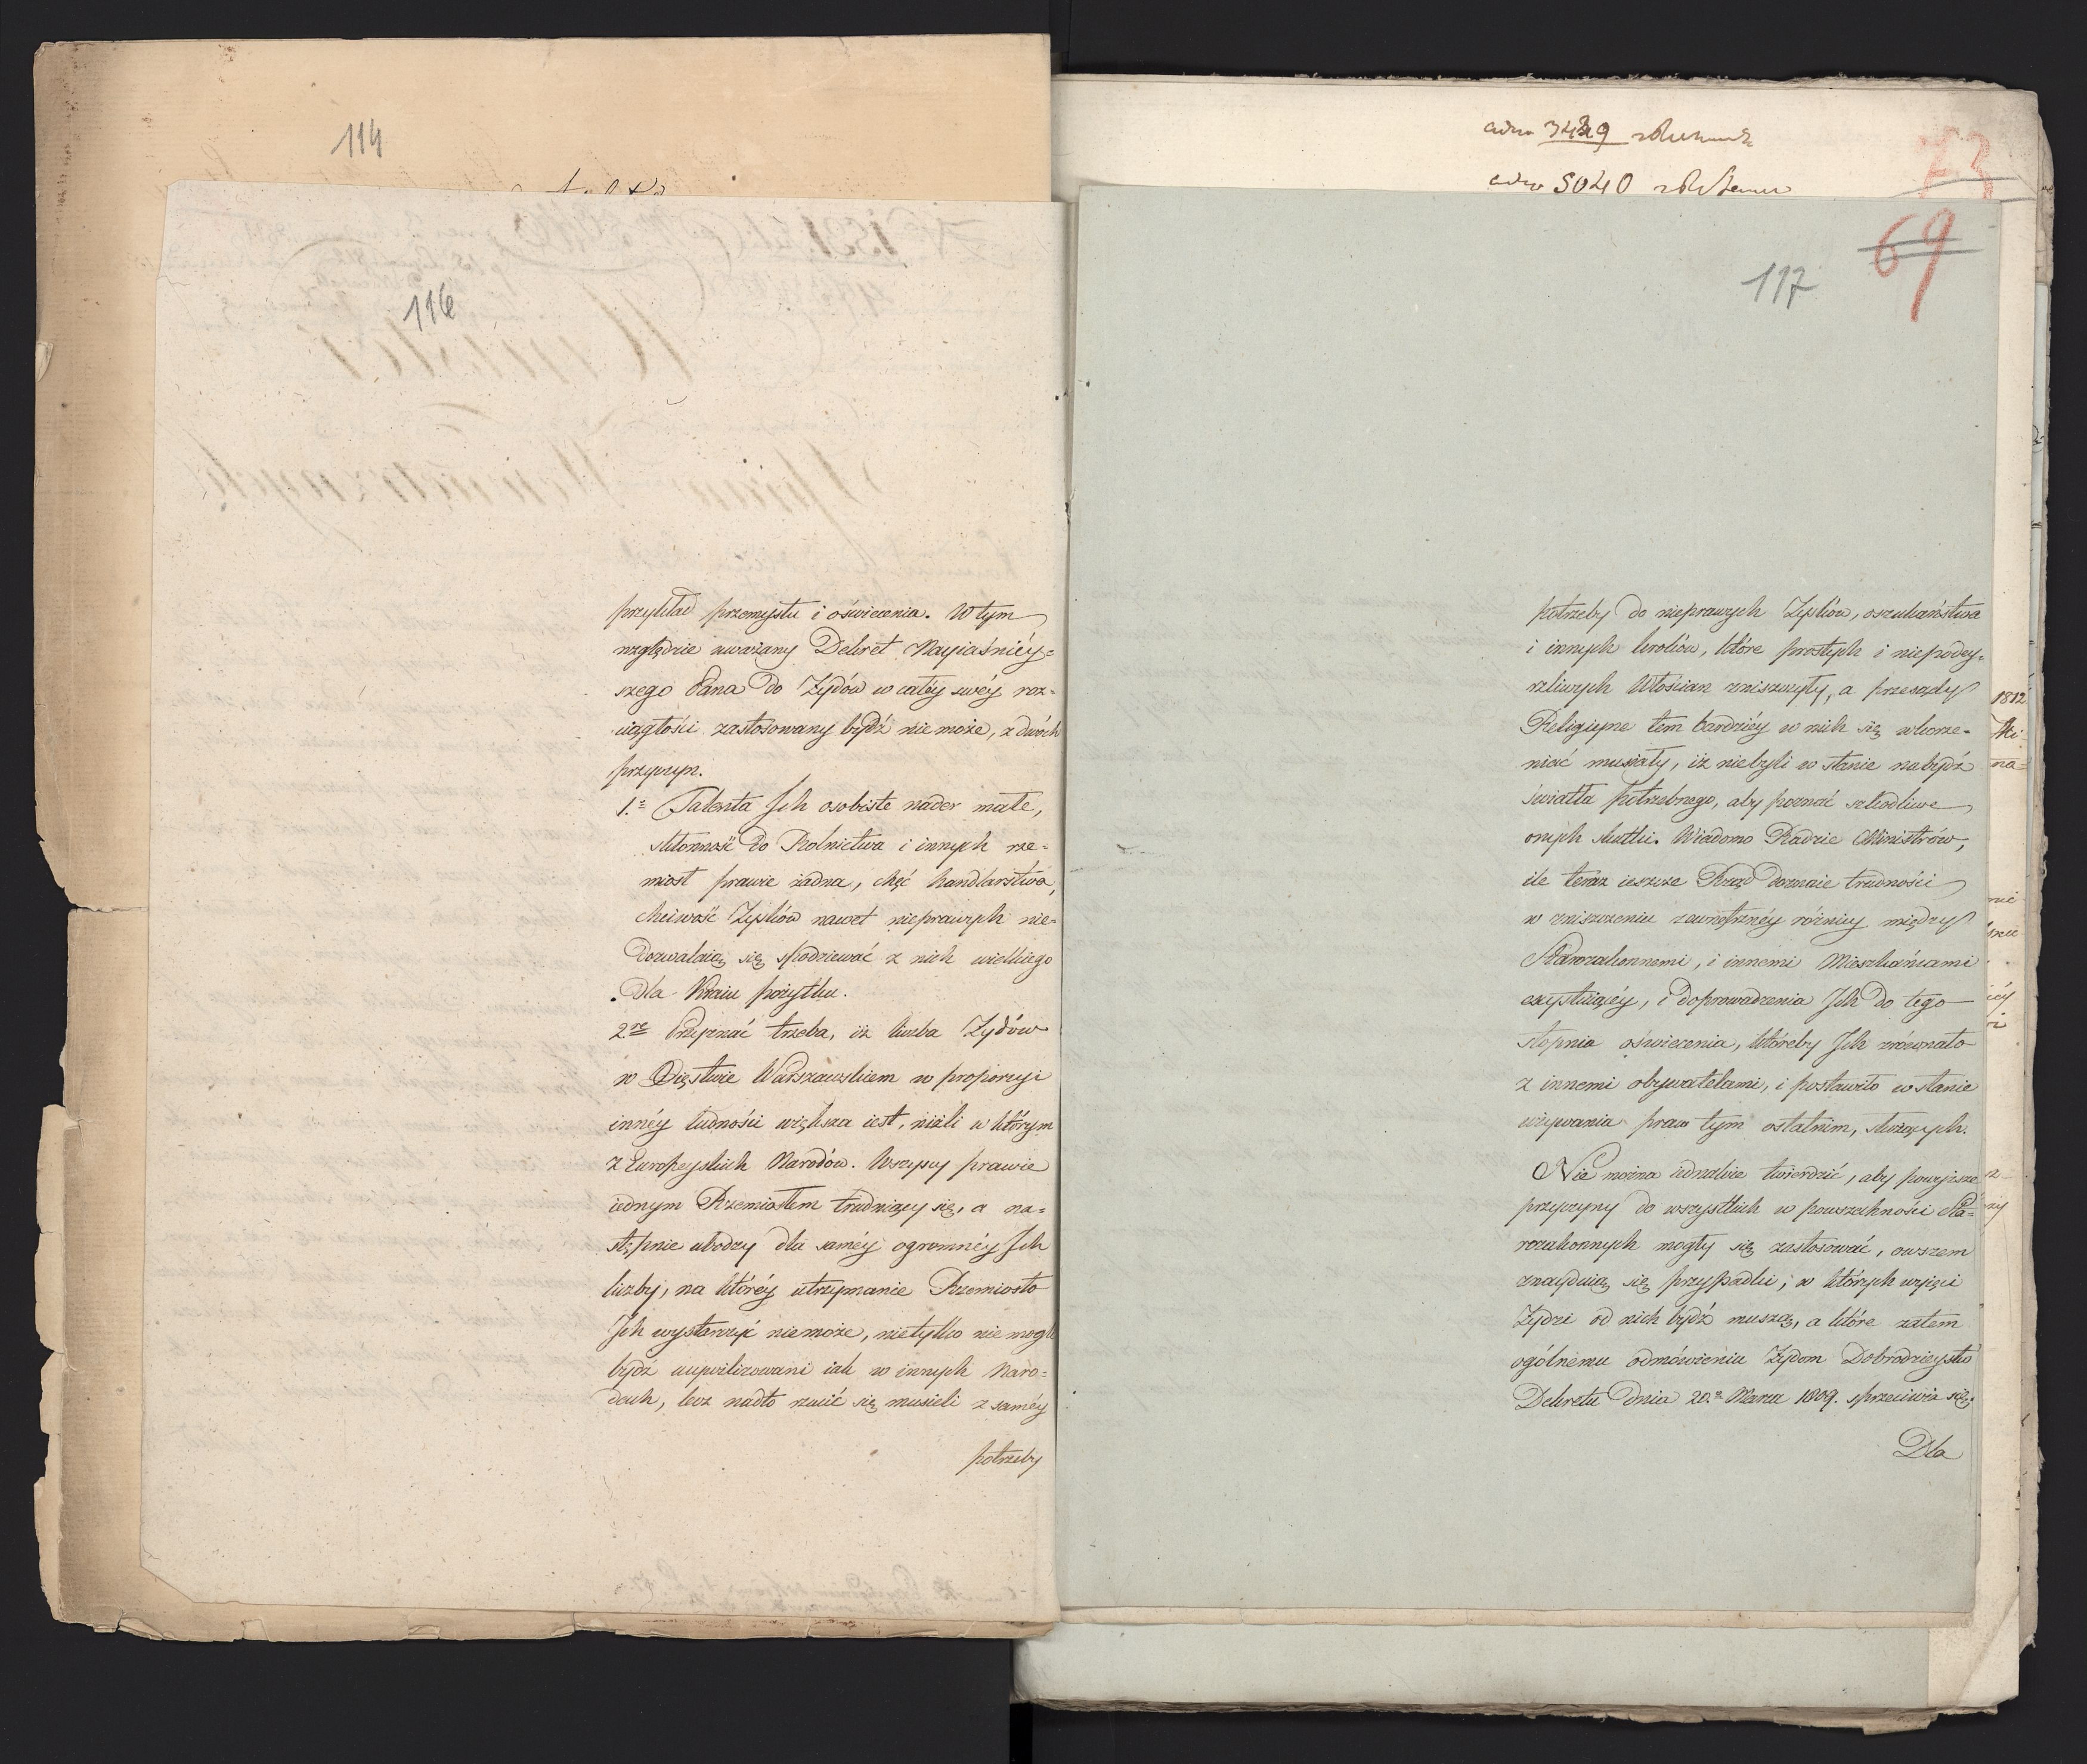 114
116
przykład przemysłu i oświecenia. W tym
względzie uważany Dekret Nayiaśniéy=
szego Pana do Żydów w całéy swéy roz=
ciągłości zastosowany bydź nie może, z dwóch
przyczyn.
1.º Talenta Jch osobiste nader małe,
skłonność do Rolnictwa i innych rze=
miost prawie żadna, chęć handlarstwa,
chciwość Zysków nawet nieprawych nie=
dozwalaią się spodziewać z nich wielkiego
dla Kraiu pożytku.
2re Przyznać trzeba, iż liczba Żydów
w Xięstwie Warszawskiem w proporcyi
innéy ludności większa iest, niżli w którym
z Europeyskich Narodów. Wszyscy prawie
iednym Rzemiosłem trudniący się, a na=
stępnie ubodzy dla saméy ogromnéy Jch
liczby, na któréy utrzymanie Rzemiosło
Jch wystarczyć niemoże, nietylko nie mogli
bydź ucywilizowani iak w innych Naro=
dach, lecz nadto rzucić się musieli z saméy
potrzeby
3429
5040
73
69
117
potrzeby do nieprawych Zysków, oszukaństwa
i innych kroków, które prostych i niepodey=
rzliwych Włościan zniszczyły, a przesądy
Religiyne tem bardziéy w nich się wkorze=
niać musiały, iż niebyli w stanie nabydź
światła potrzebnego, aby poznać szkodliwe
onych skutki. Wiadomo Radzie Ministrów,
ile teraz ieszcze Rząd doznaie trudności
w zniszczeniu zewnętrznéy różnicy między
Starozakonnemi, i innemi Mieszkańcami
exystuiącéy, i doprowadzenia Jch do tego
stopnia oświecenia, któreby Jch zrównało
z innemi obywatelami, i postawiło w stanie
używania praw tym ostatnim, służących.
Nie można iednakże twierdzić, aby powyższe
przyczyny do wszystkich w powszechności Sta=
rozakonnych mogły się zastosować, owszem
znayduią się przypadki, w których wyięci
Żydzi od nich bydź muszą, a które zatem
ogólnemu odmówieniu Żydom Dobrodzieystw
Dekretu dnia 20.º Marca 1809. sprzeciwia się.
Dla
1812